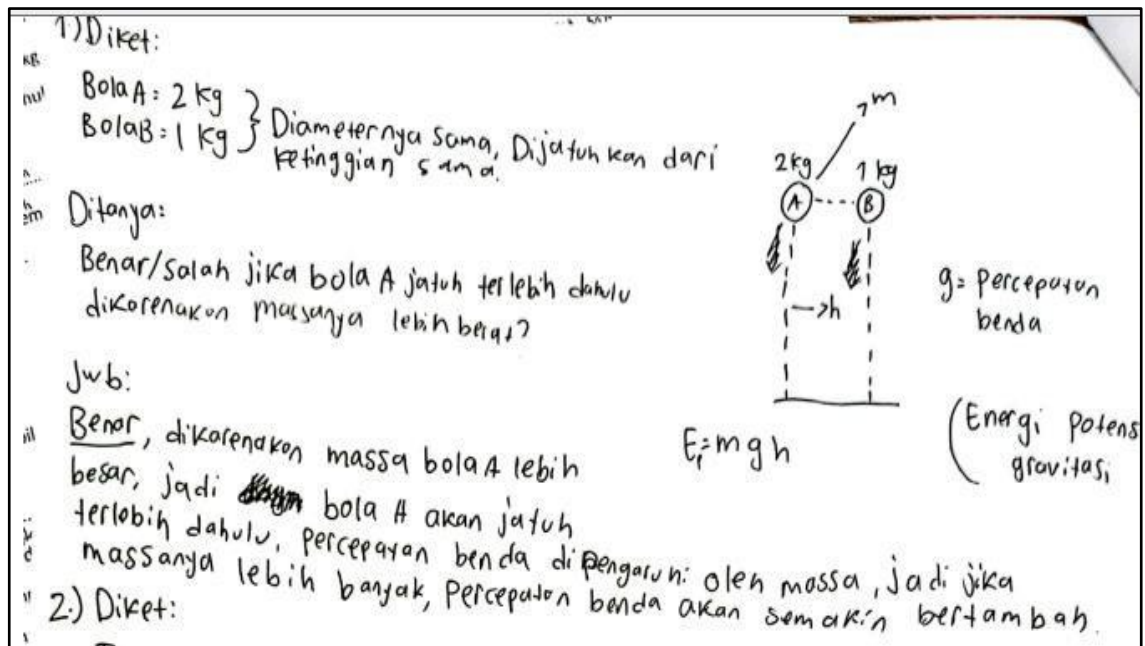 1) Diket:
Bola A : 2 kg
Bola B : 1 kg
Diameternya sama, Dijatuhkan dari
ketinggian sama.
Ditanya:
Benar/salah jika bola A jatuh terlebih dahulu
dikarenakan massanya lebih berat?
Jwb:
Benar, dikarenakan massa bola A lebih
besar, jadi bola A akan jatuh
terlebih dahulu, percepatan benda dipengaruhi oleh massa, jadi jika
massanya lebih banyak, Percepatan benda akan semakin bertambah.
2.) Diket:
m
2kg 1 kg
A B
h
g= Percepatan
benda
E,=mgh
(Energi Potens
gravitasi